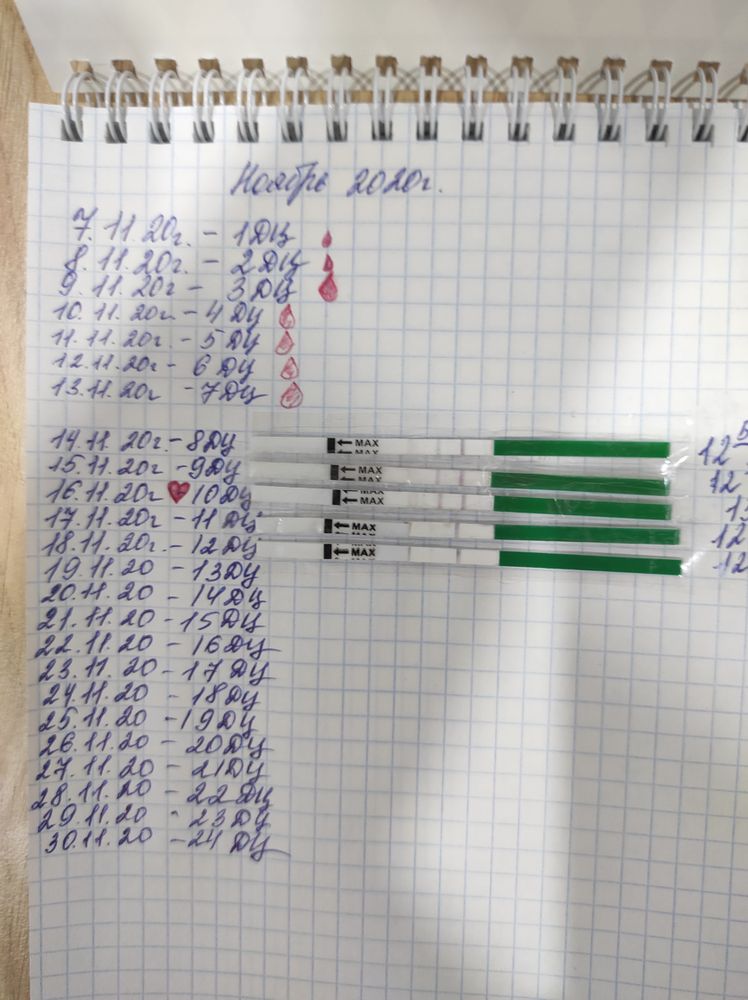 Ноябрь 2020г.
7.11.20г. - 1ДЦ
8.11.20г. - 2ДЦ
9.11.20г - 3ДЦ
10.11.20г. - 4 ДЦ
11.11.20г. - 5 ДЦ
12.11.20г - 6 ДЦ
13.11.20г - 7ДЦ
14.11 20г. - 8ДЦ ← MAX 12
15.11.20г - 9ДЦ ← MAX 12
16.11.20г 10ДЦ ← MAX
17.11.20г - 11 ДЦ ← MAX 12
18.11.20г. - 12ДЦ ← MAX 12
19.11.20 - 13ДЦ
20.11.20 - 14 ДЦ
21.11.20 - 15ДЦ
22.11.20 - 16ДЦ
23.11.20 - 17 ДЦ
24.11.20 - 18ДЦ
25.11.20 - 19ДЦ
26.11.20 - 20ДЦ
27.11.20 - 21ДЦ
28.11.20 - 22ДЦ
29.11.20 - 23ДЦ
30.11.20 - 24 ДЦ